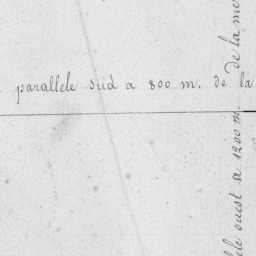 parallele sud a 800 m. de la
lele ouest a 1200 m. De la me